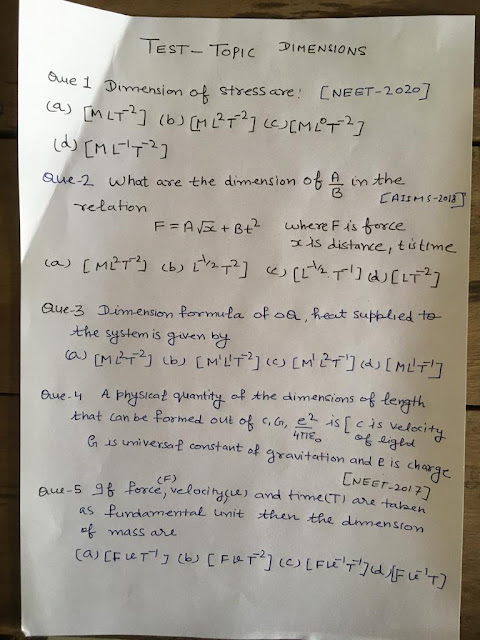 TEST - TOPIC DIMENSIONS
Que 1 Dimension of stress are: [NEET-2020]
(a) [MLT⁻²] (b) [ML²T⁻²] (c) [ML⁰T⁻²]
(d) [ML⁻¹T⁻²]
Que-2 What are the dimension of A/B in the
relation [AIIMS-2018]
F = A√x + Bt² where F is force
x is distance, t is time
(a) [ML²T⁻²] (b) L⁻¹/²T²] (c) [L⁻¹/².T⁻¹] (d) [LT⁻²]
Que-3 Dimension formula of ΔQ, heat supplied to
the system is given by
(a) [ML²T⁻²] (b) [M¹L¹T⁻²] (c) [M¹L²T⁻¹] (d) [ML¹T⁻¹]
Que-4 A physical quantity of the dimensions of length
that can be formed out of c, G, e²/4πε₀ is [c is velocity
of light
G is universal constant of gravitation and e is charge
[NEET-2017]
Que-5 If force,(F) velocity(v) and time(T) are taken
as fundamental unit then the dimension
of mass are
(a) [FvT⁻¹] (b) [FvT⁻²] (c) [Fv⁻¹T⁻¹] (d) [Fv⁻¹T]